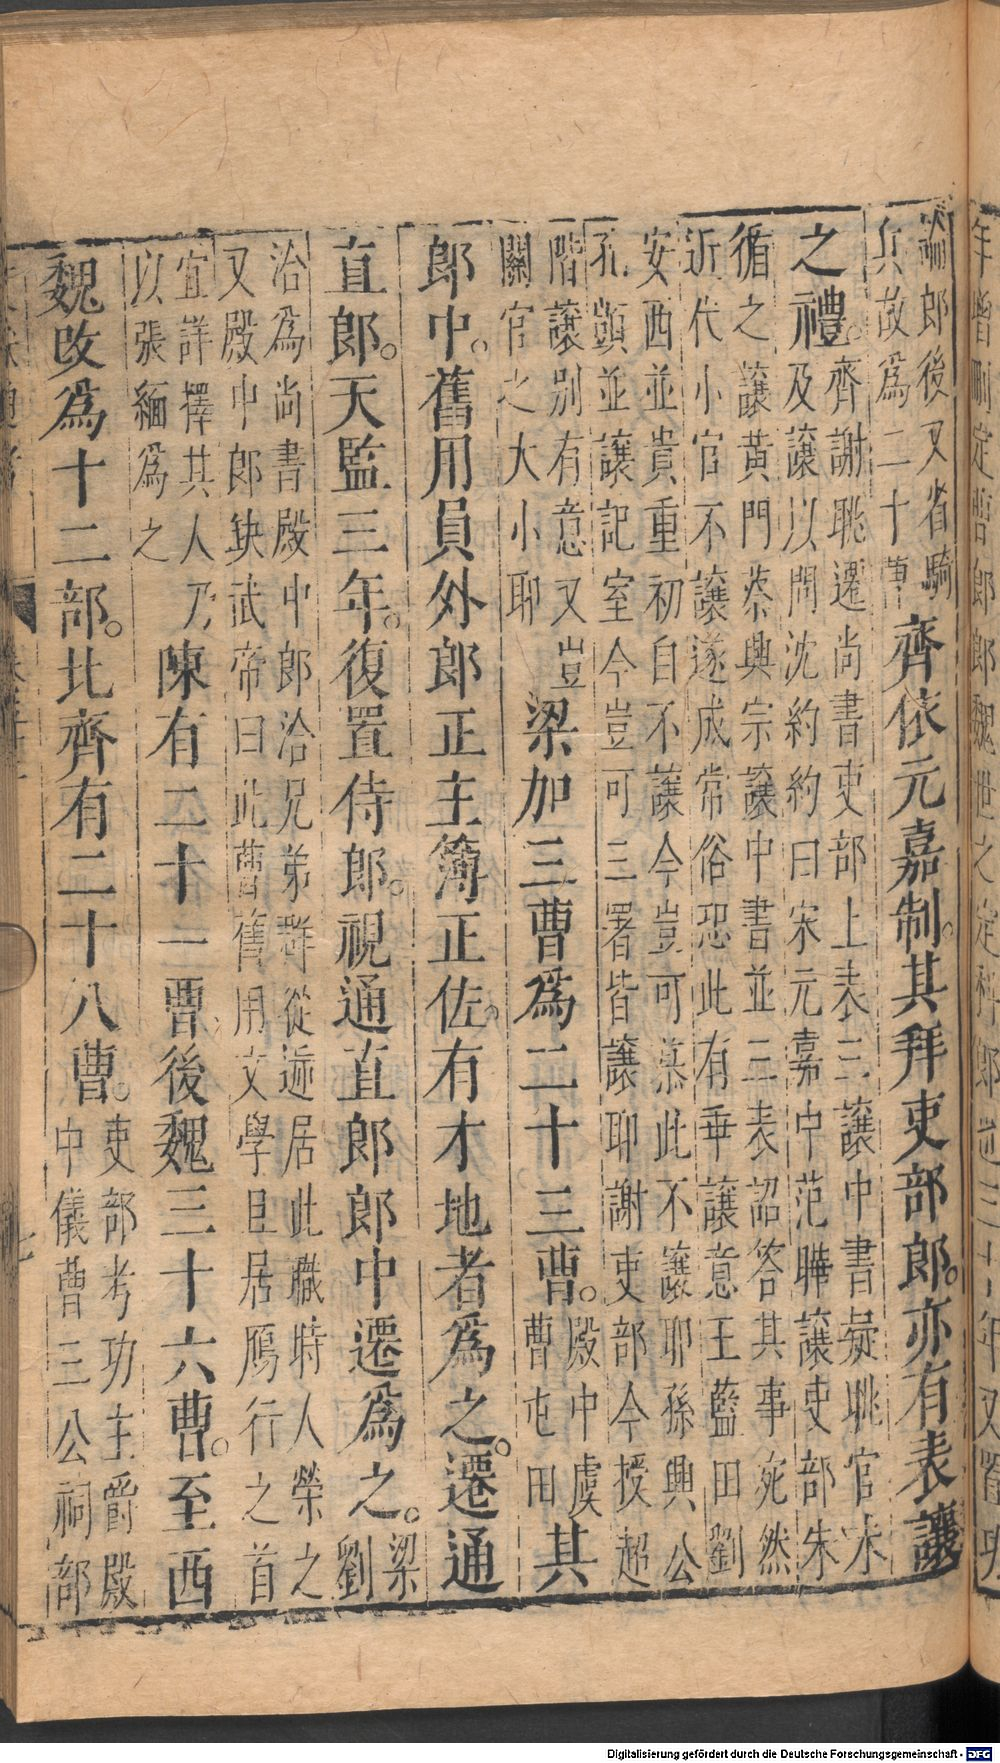 論郎後又省騎
兵故為二十曹
齊依元嘉制。其拜吏部郎。亦有表讓
之禮。
齊謝眺遷尚書吏部上表三讓中書疑眺官未
及讓以問沈約約曰宋元嘉中范曄讓吏部朱
循之讓黃門蔡興宗讓中書並三表詔答其事宛然
近代小官不讓遂成常俗恐此有乖讓意王藍田劉
安西並貴重初自不讓今豈可慕此不讓耶孫興公
孔顗並讓記室今豈可三署皆讓耶謝吏部今授超
階讓別有意又豈
關官之大小耶
梁加三曹為二十三曹。
殿中虞
曹屯田
其
郎中。舊用員外郎正主簿正佐。有才地者為之。遷通
直郎。天監三年。復置侍郎。視通直郎郎中遷為之。
梁
劉
洽為尚書殿中郎洽兄弟群從遞居此職時人榮之
又殿中郎缺武帝曰此曹舊用文學且居鴈行之首
宜詳擇其人乃
以張緬為之
陳有二十一曹後魏三十六曹。至西
魏改為十二部。北齊有二十八曹。
吏部考功主爵殿
中儀曹三公祠部
Digitalisierung gefördert durch die Deutsche Forschungsgemeinschaft - DFG